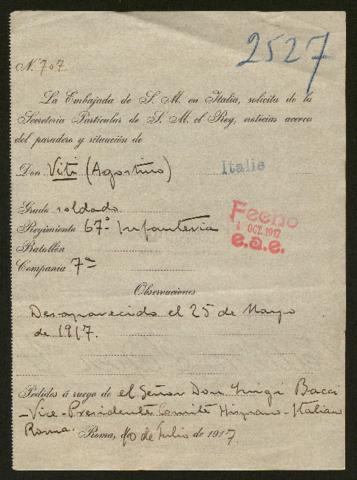 2527
N. 707
La Embajada de S. M. en Italia, solicita de la
Secretaría Particular de S. M. el Rey, noticias acerca
del paradero y situación de
Don Viti (Agostino)
Italie
Grado soldado
Regimiento 67º Infanteria
Batallón
Compañia 7ª
Fecho
1 OCT. 1917
e.a.e.
Observaciones
Desaparecido el 25 de Mayo
de 1917.
Pedidos á ruego de el Señor Don Luigi Bacci
-Vice-Presidente Comité Hispano-Italian
Roma.
Roma, 10 de Julio de 1917.